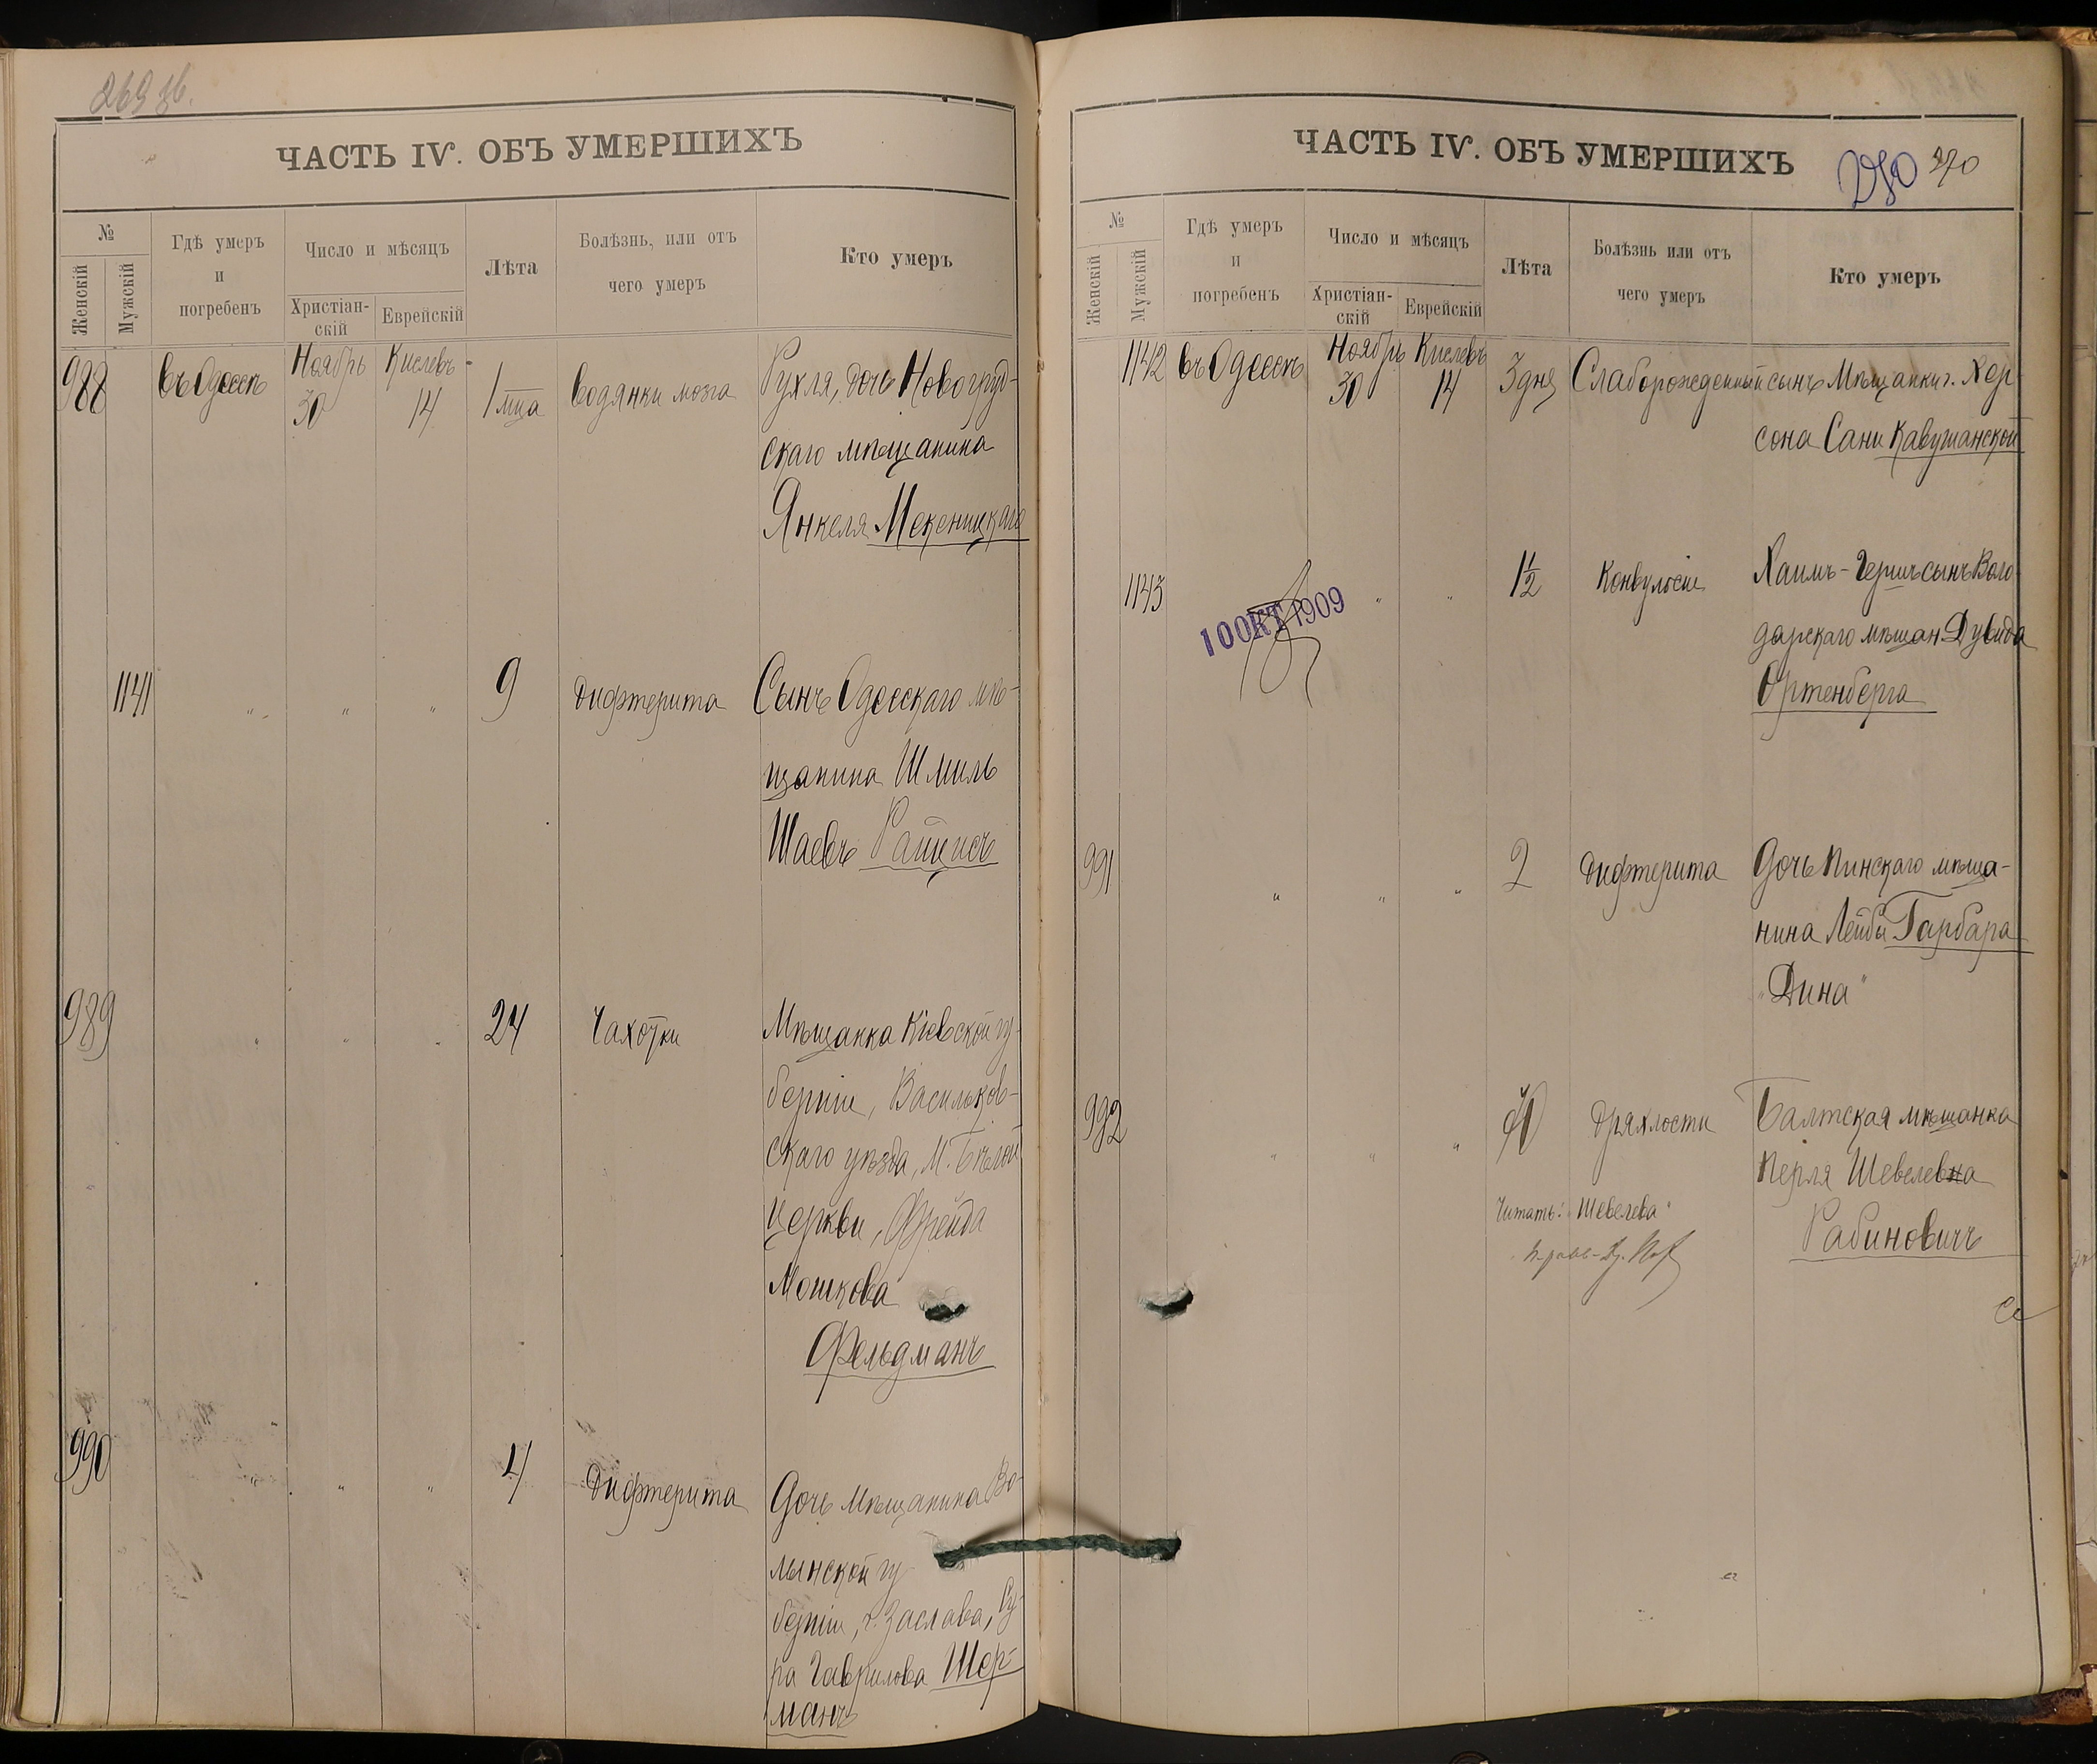 269 зв.
ЧАСТЬ IV. ОБЪ УМЕРШИХЪ
№
Женскій
Мужскій
Гдѣ умеръ
и
погребенъ
Число и мѣсяцъ
Христіан-
скій
Еврейскій
Лѣта
Болѣзнь, или отъ
чего умеръ
Кто умеръ
988 въ Одессѣ Ноябрь 30 Кислевъ 14 1 мца водянки мозга Рухля, дочь Новогруд-
скаго мѣщанина
Янкеля Мекеницкаго
1141 " " " 9 дифтерита Сынъ Одесскаго мѣ-
щанина Шмиль
Шаевъ Райцисъ
989 " " " 24 Чахотки Мѣщанка Кіевской гу-
берніи, Васильков-
скаго уѣзда, М. Бѣлой
Церкви, Фрейда
Мошкова
Фельдманъ
990 " " " 4 Дифтерита Дочь мѣщанина Во-
лынской гу
берніи, г. Заслава, Су-
ра Гаврилова Шер-
манъ
ЧАСТЬ IV. ОБЪ УМЕРШИХЪ
270 270
№
Женскій
Мужскій
Гдѣ умеръ
и
погребенъ
Число и мѣсяцъ
Христіан-
скій
Еврейскій
Лѣта
Болѣзнь или отъ
чего умеръ
Кто умеръ
1142 въ Одессѣ Ноябрь 30 Кислевъ 14 3 дня Слаборожденный сынъ Мѣщанки г. Хер
сона Сани Кавушанской
1143 " " 1½ Конвульсіи Хаимъ-Гершъ сынъ Воло-
дарскаго мѣщан. Дувида
Ортенберга
10 ОКТ 1909
991 " " " 2 Дифтерита Дочь Пинскаго мѣща-
нина Лейбы Гарбара
"Дина"
992 " " " 70 Дряхлости Балтская мѣщанка
Перля Шевелевна
Читать: Шевелева"
Рабиновичъ